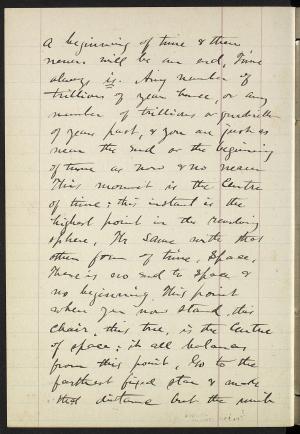 A beginning of time & there
never will be an end. Time
always is. Any number of
trillions of years hence, or any
number of trillions or quadrillions
of years past, & you are just as
near the end or the beginning
of time as now & no nearer
This moment is the Centre
of time; this instant is the
highest point in the revolving
sphere. The same with that
other form of time, Space.
There is no end to Space &
no beginning. This point
where you now stand, this
chair, this tree, is the Centre
of space; it all balances
from this point. Go to the
farthest fixed star & make
that distance but the unit